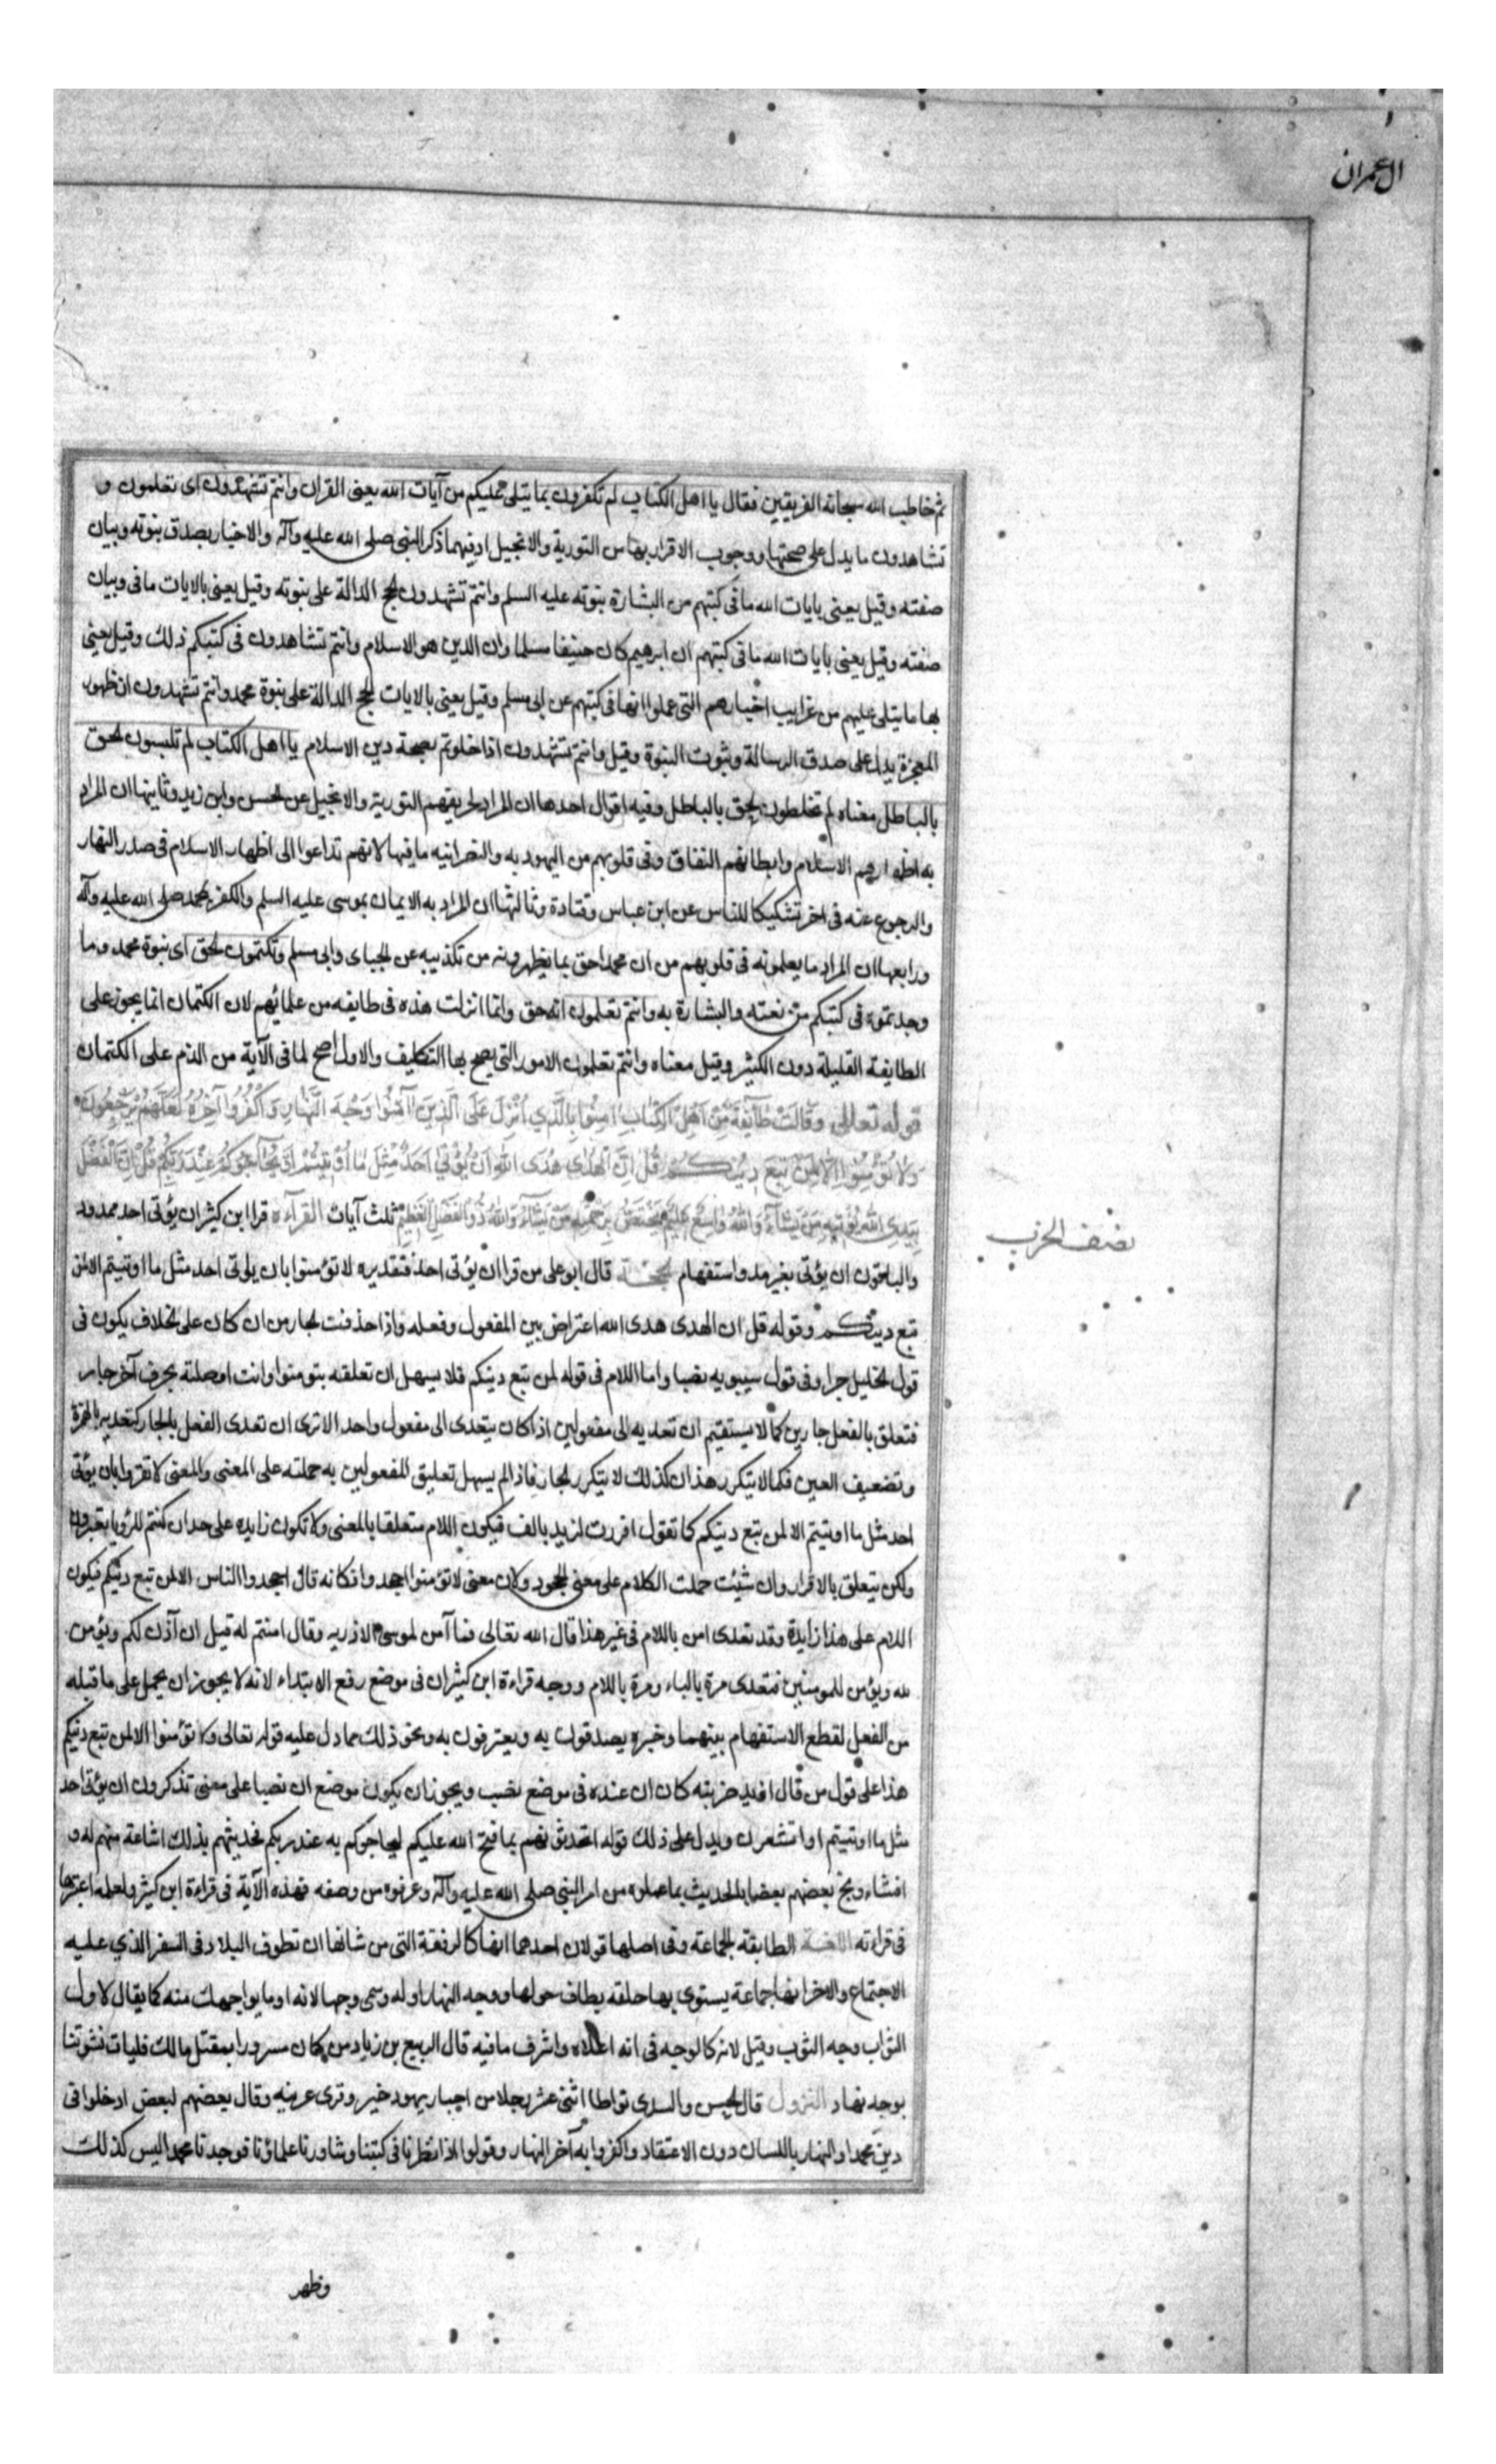 ال عمران
ثم خاطب الله سبحانه الفريقين فقال يا اهل الكتاب لم تكفرون بما يتلى عليكم من آيات الله يعنى القران وانتم تشهدون اى تعلمون و
تشاهدون ما يدل على صحتها ووجوب الاقرار بها من التورية والانجيل اذ فيهما ذكر النبى صلى الله عليه وآله والاخبار بصدق نبوته وبيان
صفته وقيل يعنى بايات الله ما فى كتبهم من البشارة بنبوته عليه السلم وانتم تشهدون الحجج الدالة على نبوته وقيل يعنى بالايات ما فى وبيان
صفته وقيل يعنى بايات الله ما فى كتبهم ان ابرهيم كان حنيفا مسلما وان الدين هو الاسلام وانتم تشاهدون فى كتبكم ذلك وقيل يعنى
بها ما يتلى عليهم من غرايب اخبارهم التى عملوا انها فى كتبهم عن ابى مسلم وقيل يعنى بالايات الحجج الدالة على نبوة محمد وانتم تشهدون ان ظهور
المعجزة يدل على صدق الرسالة وثبوت النبوة وقيل وانتم تشهدون اذا خلوتم بصحة دين الاسلام يا اهل الكتاب لم تلبسون الحق
بالباطل معناه لم تخلطون الحق بالباطل وفيه اقوال احدها ان المراد تحريفهم التورية والانجيل عن الحسن وابن زيد وثانيها ان المراد
به اظهارهم الاسلام وابطانهم النفاق وفى قلوبهم من اليهوديه والنصرانيه ما فيها لانهم تداعوا الى اظهار الاسلام فى صدر النهار
والرجوع عنه فى اخر تشكيكا للناس عن ابن عباس وقتادة وثالثها ان المراد به الايمان بموسى عليه السلم والكفر بمحمد صلى الله عليه وآله
ورابعها ان المراد ما يعلمونه فى قلوبهم من ان محمدا حق بما يظهرونه من تكذيبه عن الجباى وابى مسلم وتكتمون الحق اى نبوة محمد وما
وجدتموه فى كتبكم من نعته والبشارة به وانتم تعلمون انه حق وانما انزلت هذه فى طايفه من علمائهم لان الكتمان انما يجوز على
الطايفة القليلة دون الكثير وقيل معناه وانتم تعلمون الامور التى يصح بها التكليف والاول اصح لما فى الآية من الذم على الكتمان
قوله تعالى وَقَالَتْ طَآئِفَةٌ مِنْ اَهْلِ الْكِتَابِ امِنُوا بِالَّذِي اُنْزِلَ عَلَى الَّذِينَ اآمَنُوا وَجْهَ النَّهَارِ وَاكْفُرُوا آخِرَهُ لَعَلَّهُمْ يَرْجِعُونَ
وَلَا تُؤْمِنُوا اِلَّا لِمَنْ تَبِعَ دِينَكُمْ قُلْ اِنَّ الْهُدٰى هُدَى اللهِ اَنْ يُؤْتٰى اَحَدٌ مِثْلَ مَا اُوتِيتُمْ اَوْ يُحَآجُّوكُمْ عِنْدَ رَبِّكُمْ قُلْ اِنَّ الْفَضْلَ
بِيَدِ اللهِ يُؤْتِيهِ مَنْ يَشَآءُ وَاللهُ وَاسِعٌ عَلِيمٌ يَخْتَصُّ بِرَحْمَتِهِ مَنْ يَشَآءُ وَاللهُ ذُو الْفَضْلِ الْعَظِيمِ ثلث آيات القرآءه قرا ابن كثير ان يؤتى احد ممدود
نصف الحزب
والباقون ان يؤتى بغير مد واستفهام الحجة قال ابو على من قرا ان يؤتى احد فتقديره لا تؤمنوا بان يؤتى احد مثل ما اوتيتم الا لمن
تبع دينكم وقوله قل ان الهدى هدى الله اعتراض بين المفعول وفعله واذا حذفت الجار من ان كان على الخلاف يكون فى
قول الخليل جرا وفى قول سيبويه نصبا واما اللام فى قوله لمن تبع دينكم فلا يسهل ان تعلقه بتومنوا وانت اوصلته بحرف آخر جار
فتعلق بالفعل جارين كما لا يستقيم ان تعديه الى مفعولين اذا كان يتعدى الى مفعول واحد الا ترى ان تعدى الفعل بالجار كتعديه بالهمزة
وتضعيف العين فكما لا يتكرر هذان كذلك لا يتكرر الجار فاذا لم يسهل تعليق المفعولين به حملته على المعنى والمعنى لا تقروا بان يؤتى
احد مثل ما اوتيتم الا لمن تبع دينكم كما تقول اقررت لزيد بالف فيكون اللام متعلقا بالمعنى ولا تكون زايده على حد ان كنتم للرؤيا تعبرون
ولكن يتعلق بالاقرار وان شئت حملت الكلام على معنى الجحود ولان معنى لا تؤمنوا اجحدوا فكانه قال اجحدوا الناس الا لمن تبع دينكم فيكون
اللام على هذا زايدة وقد تعدى امن باللام فى غير هذا قال الله تعالى فما آمن لموسى الا ذريه وقال امنتم له قبل ان آذن لكم ويؤمن
لله ويؤمن للمومنين فتعدى مرة بالباء ومرة باللام ووجه قراءة ابن كثير ان فى موضع رفع الابتداء لانه لا يجوز ان يحمل على ما قبله
من الفعل لقطع الاستفهام بينهما وخبره يصدقون به ويعترفون به ونحو ذلك مما دل عليه قوله تعالى ولا تؤمنوا الا لمن تبع دينكم
هذا على قول من قال ازيد ضربته كان ان عنده فى موضع نصب ويجوز ان يكون موضع ان نصبا على معنى تذكرون ان يؤتى احد
مثل ما اوتيتم او اتشعرن ويدل على ذلك قوله اتحدثونهم بما فتح الله عليكم ليحاجوكم به عند ربكم فحديثهم بذلك اشاعة منهم له و
افشاء وبخ بعضهم بعضا بالحديث بما علموه من امر النبى صلى الله عليه وآله وعرفوه من وصفه فهذه الآية فى قراءة ابن كثير ولعله اعتبرها
فى قراته اللغة الطايفة الجماعة وفى اصلها قولان احدهما انها كالرفقة التى من شانها ان تطوف البلاد فى السفر الذي عليه
الاجتماع والاخر انها جماعة يستوى بها حلقه يطاف حولها ووجه النهار اوله وسمى وجها لانه اوما يواجهك منه كما يقال لاول
الثواب وجه الثوب وقيل لانه كالوجه فى انه اعلاه واشرف ما فيه قال الربيع بن زياد من كان مسرورا بمقتل مالك فليات نشوتنا
بوجه نهار النزول قال الحسن والسدى تواطا اثنى عشر رجلا من احبار يهود خيبر وقرى عرينه وقال بعضهم لبعض ادخلوا فى
دين محمد اول النهار باللسان دون الاعتقاد واكفروا به آخر النهار وقولوا اذا نظرنا فى كتبنا وشاورنا علماؤنا فوجدنا محمدا ليس كذلك
وظهر